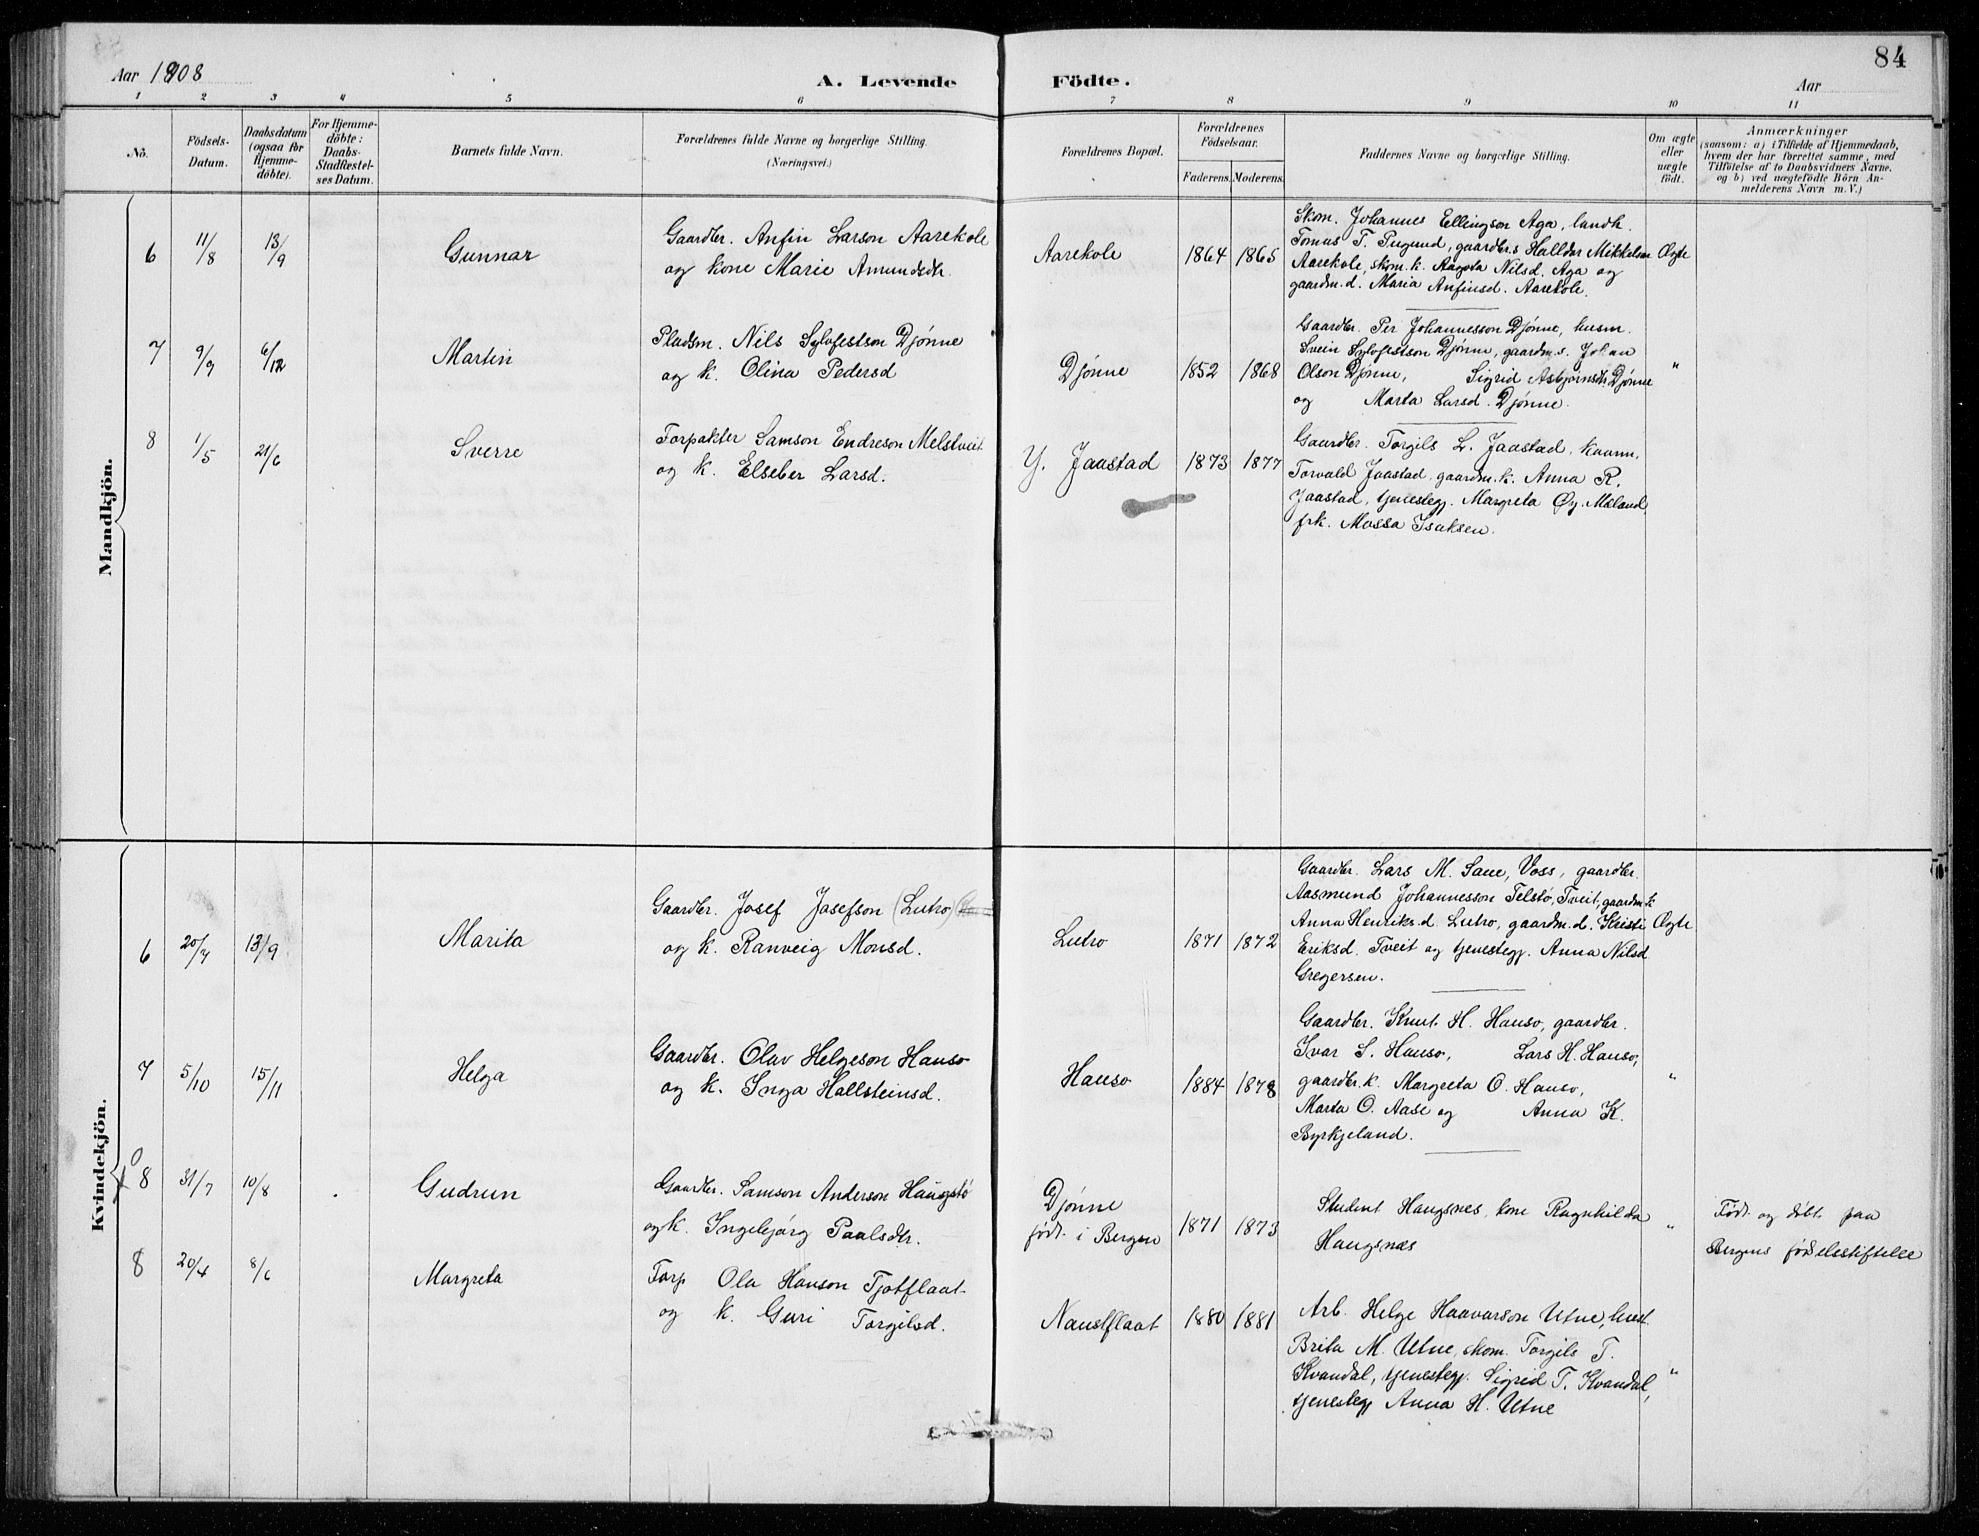 84
Aar 1908
A. Levende Födte.
Aar
1 2 3 4 5 6 7 8 9 10 11
No.
Födsels-
Datum.
Daabsdatum
(ogsaa for
Hjemme-
döbte).
For Hjemme-
döbte:
Daabs-
Stadfæstel-
ses Datum.
Barnets fulde Navn.
Forældrenes fulde Navne og borgerlige Stilling.
(Næringsvei.)
Forældrenes Bopæl.
Forældrenes
Födselsaar.
Faderens. Moderens.
Faddernes Navne og borgerlige Stilling.
Om ægte
eller
uægte
födt.
Anmærkninger
(saasom: a) i Tilfælde af Hjemmedaab,
hvem der har forrettet samme, med
Tilföielse af to Daabsvidners Navne,
og b) ved uægtefödte Börn An-
melderens Navn m. V.)
Mandkjön.
6 11/8 13/9 Gunnar
Gaardbr. Anfin Larson Aarekole
og kone Marie Amundsdtr.
Aarekole 1864 1865
Skom. Johannes Ellingson Aga, landh.
Tomas T. , gaardbr.s Halldor Mikkelson
Aarekole, skom. k. Aagota Nilsd. Aga og
gaardm. d. Maria Anfinsd. Aarekole.
Ægte
7 9/9 6/12 Martin
Pladsm. Nils Sylvfestson Djønne
og k. Olina Pedersd
Djønne 1852 1868
Gaardbr. Per Johannesson Djønne, husm.
Svein Sylvfestson Djønne, gaardm. s. Johan
Olson Djønne, Sigrid Asbjørnsdtr Djønne
og Marta Larsd. Djønne.
"
8 1/5 21/6 Sverre
Forpakter Samson Endreson Melstveit
og k. Elseber Larsd.
Y. Jaastad 1873 1877
Gaardbr. Torgils L. Jaastad, kaarm.
Torvald Jaastad, gaardm. k. Anna R.
Jaastad, tjenestegj. Margreta Øy. Mæland,
frk. Mossa Isaksen.
Kvindekjön.
6 20/7 13/9 Marita
Gaardbr. Josef Josefson (Lutro)
og k. Ranveig Monsd.
Lutro 1871 1872
Gaardbr. Lars M. Saue, Voss, gaardbr.
Aasmund Johannesson Telstø, Tveit, gaardm. k.
Anna Henriks.d. Lutro, gaardm. d. Kristi
Eriksd. Tveit og tjenestegj. Anna Nilsd
Gregersen.
Ægte
7 5/10 15/11 Helga
Gaardbr. Olav Helgeson Hauso
og k. Inga Hallsteinsd.
Hauso 1884 1878
Gaardbr. Knut H. Hauso, gaardbr.
Ivar S. Hauso, Lars H. Hauso,
gaardbr. k. Margreta O. Hauso,
Marta O. Aase og Anna K.
Byrkjeland.
"
8 31/7 10/8 Gudrun
Gaardbr. Samson Anderson Haugstø
og k. Ingebjørg Paalsdtr.
Djønne
født i Bergen 1871 1873
Student Haugsnes, kone Ragnhilda
Haugsnæs
"
Født og døbt paa
Bergens fødselsstiftelse
8 20/4 8/6 Margreta
Forp Ola Hanson Tjotflaat
og k. Guri Torgilsd.
Naustflaat 1880 1881
Arb. Helge Haavarson Utne, hust.
Brita M. Utne, skom. Torgils T.
Kvandal, tjenestegj. Sigrid T. Kvandal,
tjenestegj Anna H. Utne
"